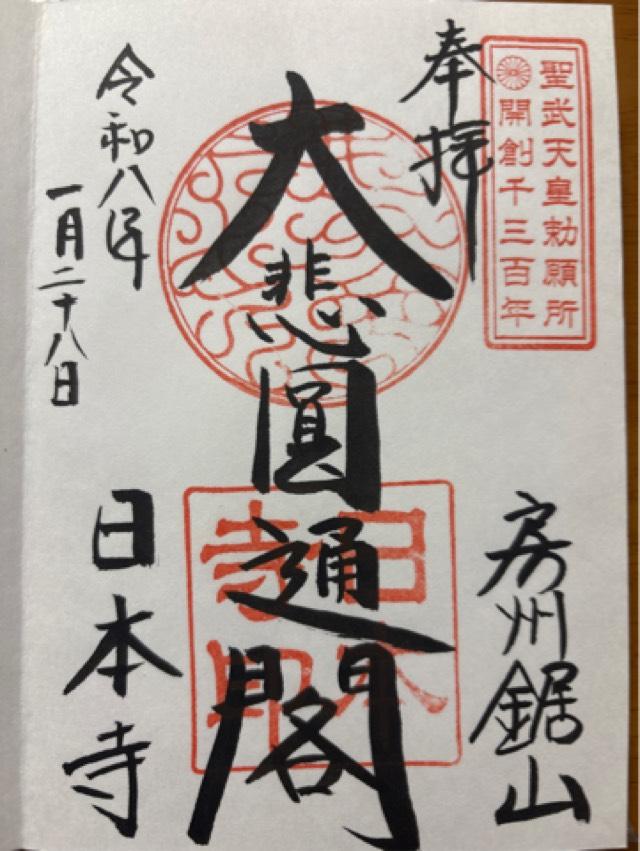 聖武天皇勅願所
開創千三百年
奉拝
房州鋸山
大悲圓通閣
日本
寺印
令和八年
一月二十八日
日本寺